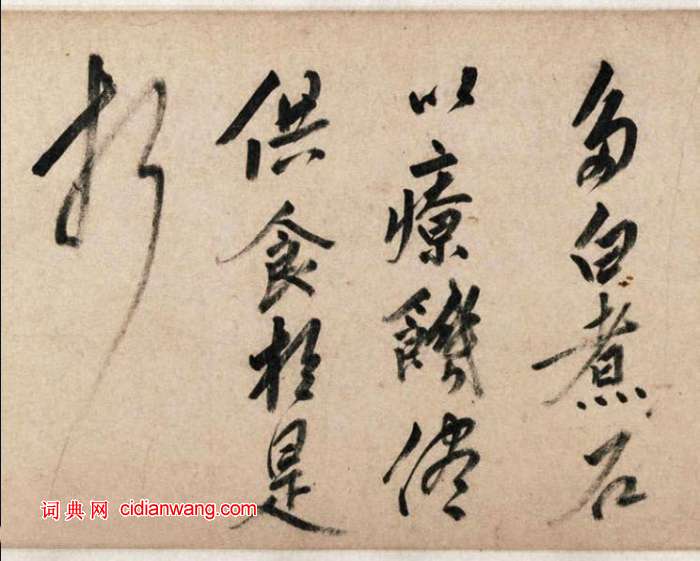 白煮石
以療饑
供食於是
词典网 cidianwang.com